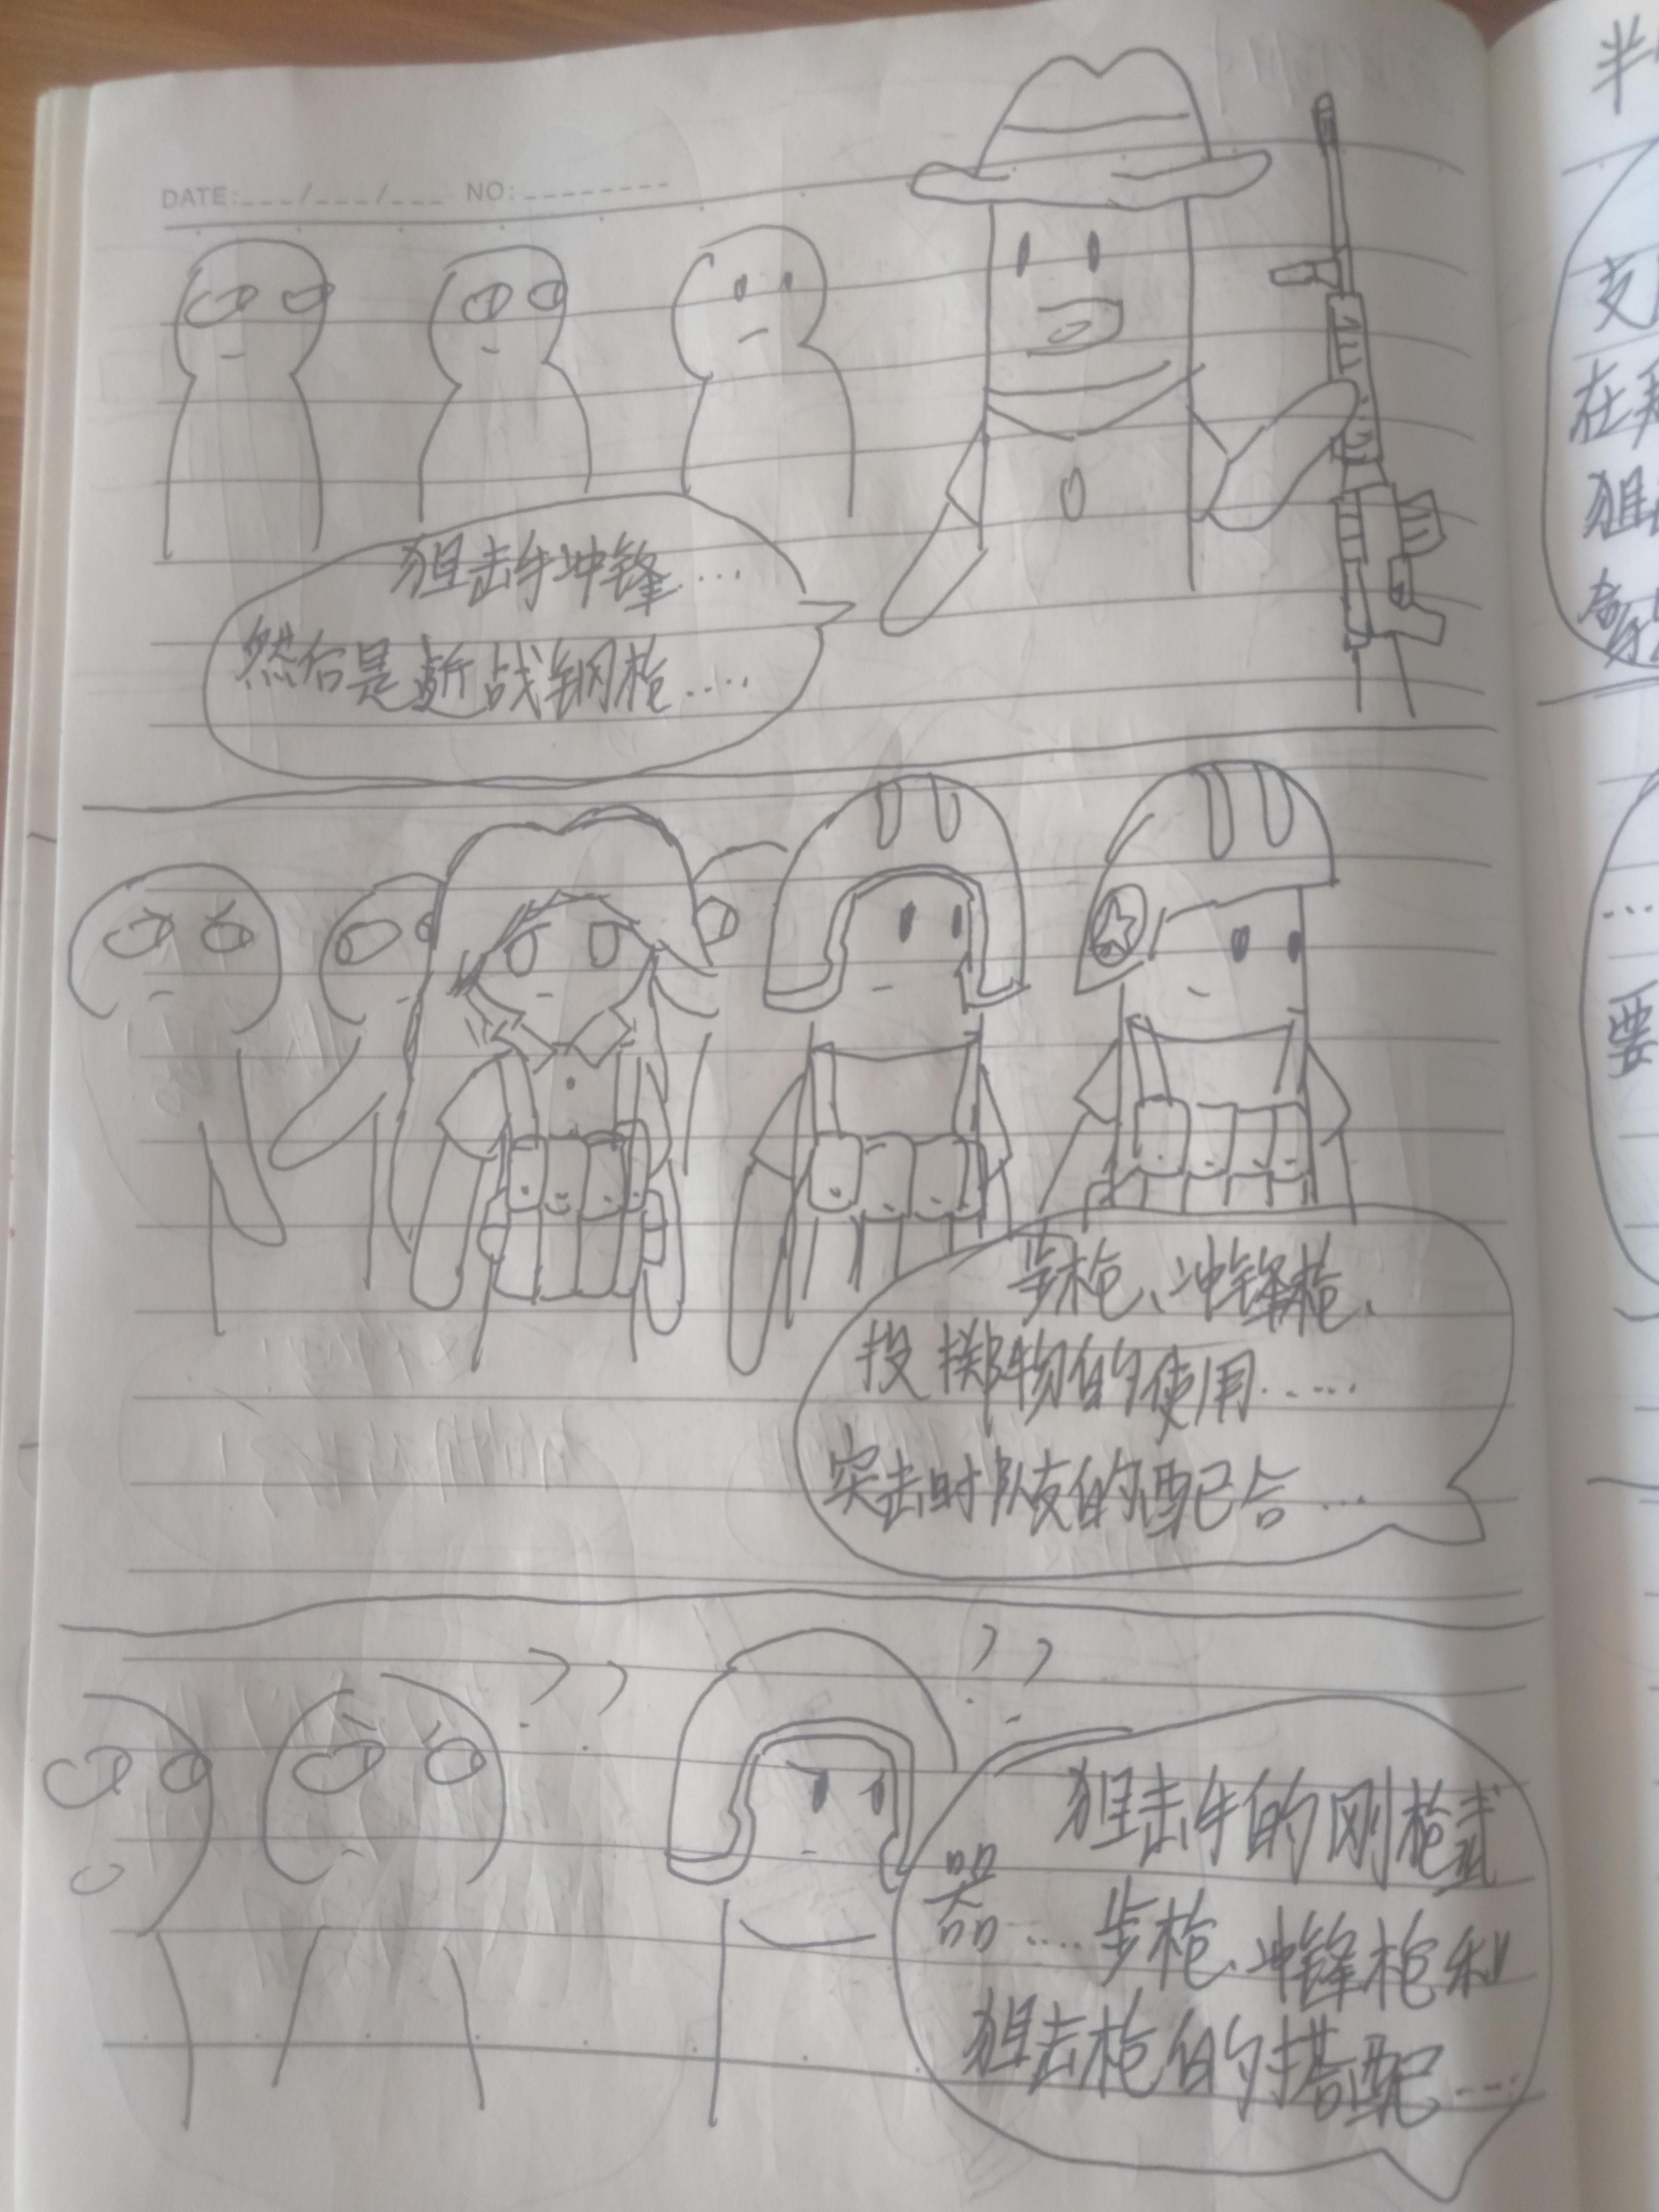 DATE:___/___/___ NO:________
狙击手冲锋....
然后是近战钢枪....
步枪、冲锋枪、
投掷物的使用.....
突击时队友的配合...
? ?
? ?
狙击手的刚枪武
器....步枪、冲锋枪和
狙击枪的搭配....
半
支
在
狙
奇
...
要